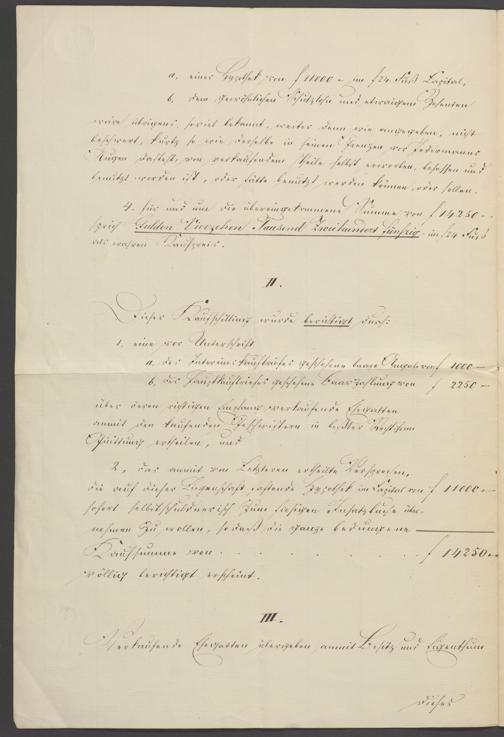 a. einer Hypothek von f 11000 – im f 24. Fuß Capital,
b. dem gewöhnlichen Schutzlohn und etwaigem Zehenten
wäre übrigens, soviel bekannt, weiter denn wie angegeben, nicht
beschwert, kurtz so wie derselbe in seinen Grenzen vor Jedermanns
Augen daliegt, von verkaufendem Theile selbst erworben, besessen und
benutzt worden ist, oder hätte benutzt werden können, oder sollen.
4. für und um die übereingekommene Summe von f 14250 –
sprich Gulden Vierzehen Tausend Zweihundert Fünfzig – im f 24 Fuß
als wahren Kaufpreis.
II.
Dieser Kaufschilling wurde berichtigt durch:
1. eine vor Unterschrift
a. des Interimskaufbriefes geschehene baare Angabe von f 1000 –
b. des Hauptkaufbriefes geschehene Baarzahlung von f 2250 –
über deren richtigen Empfang verkaufende Ehegatten
anmit den kaufenden Geschwistern in bester Rechtsform
Quittung ertheilen, und
2. das anmit von Letzteren ertheilte Versprechen,
die auf dieser Liegenschaft haftende Hypothek im Capital von f 11000 –
sofort selbstschuldnerisch zum hiesigen Insatzbuche über-
nehmen zu wollen, so daß die ganze bedungene
Kaufsumme von . . . . . . . . . f 14250 –
völlig berichtigt erscheint.
III.
Verkaufende Ehegatten übergeben anmit Besitz und Eigenthum
dieses